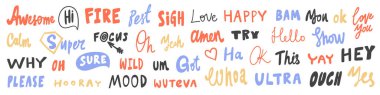 Awesome Hi FIRE Pest SiGH Love HAPPY BAM You ok Love You
Calm Super FOCUS Oh Yeah amen TRY Hello Show
WHY OH SURE WILD um Got Ha OK This YAY HEY
PLEASE HOORAY MOOD WUTEVA Whoa ULTRA OUCH Yes